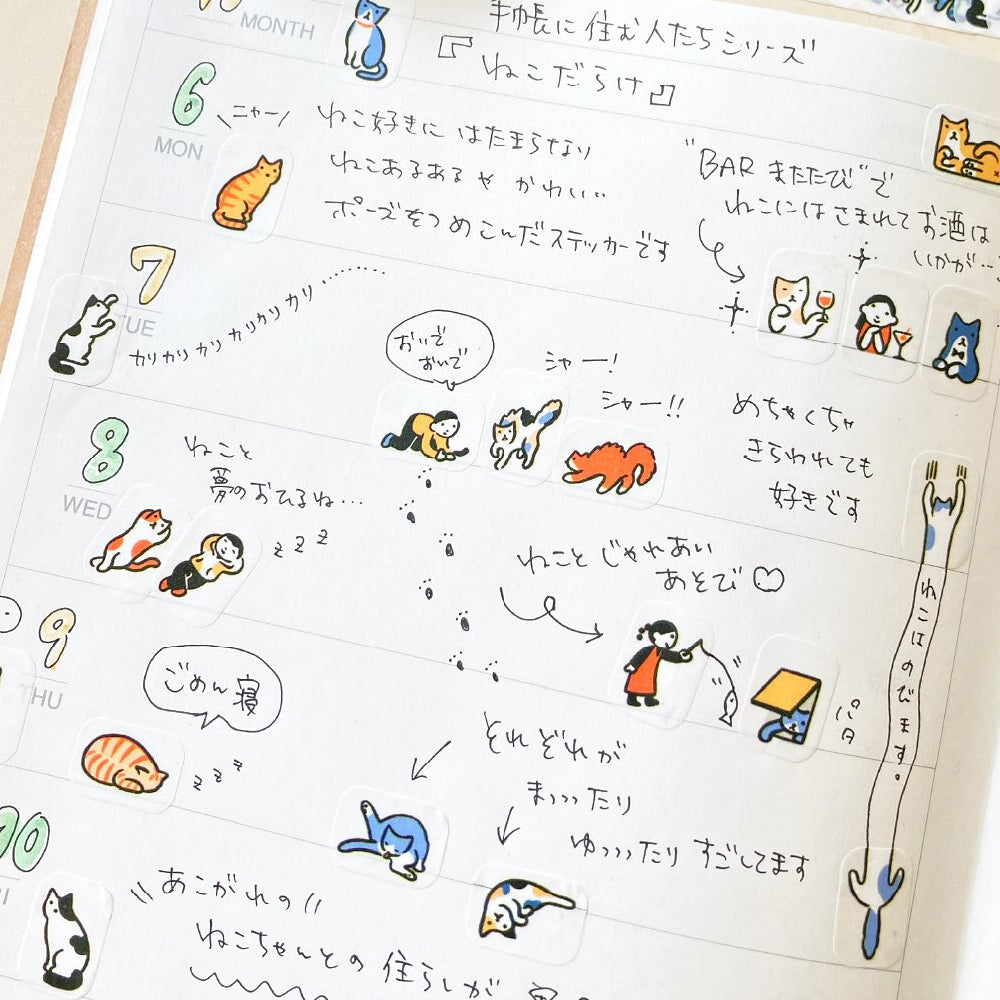 MONTH
手帳に住む人たちシリーズ
『ねこだらけ』
6
MON
ニャー
ねこ好きにはたまらない
ねこあるあるやかわいい
ポーズをつめこんだステッカーです
"BARまたたび"で
ねこにはさまれてお酒は
いかが…
7
TUE
カリカリカリカリカリカリ……
おいで
おいで
シャー!
シャー!!
めちゃくちゃ
きらわれても
好きです
8
WED
ねこと
夢のおひるね…
zzz
ねことじゃれあい
あそび♡
ねこはのびます。
9
THU
ごめん寝
zzz
パタ
それぞれが
まっっったり
ゆっっったりすごしてます
10
あこがれの
ねこちゃんとの住らしが